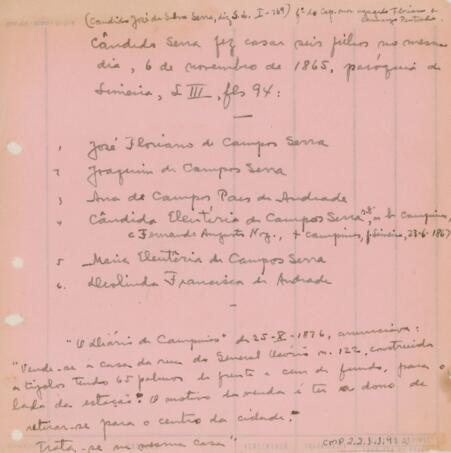 (Candido José da Silva Serra, S.L. I-169) fº do Cap. mor
Cândido Serra fez casar seis filhos no mesmo
dia, 6 de novembro de 1865, paróquia de
Limeira, L III, fls 94:
1 José Floriano de Campos Serra
2 Joaquim de Campos Serra
3 Ana de Campos Paes de Andrade
4 Cândida Eleutéria de Campos Serra, b. Campinas
c Fernando Augusto Nog., + Campinas, Limeira, 23-6-186
5 Maria Eleutéria de Campos Serra
6. Deolinda Francisca de Andrade
"O Diário de Campinas" de 25-X-1876, anunciava:
"Vende-se a casa da rua do General Osório n. 122, construida
a tijolos tendo 65 palmos de frente e cem de fundo, para o
lado da estação. O motivo da venda é ter o dono de
retirar-se para o centro da cidade.
Trata-se na mesma casa"
CMP 2.2.3.3.93